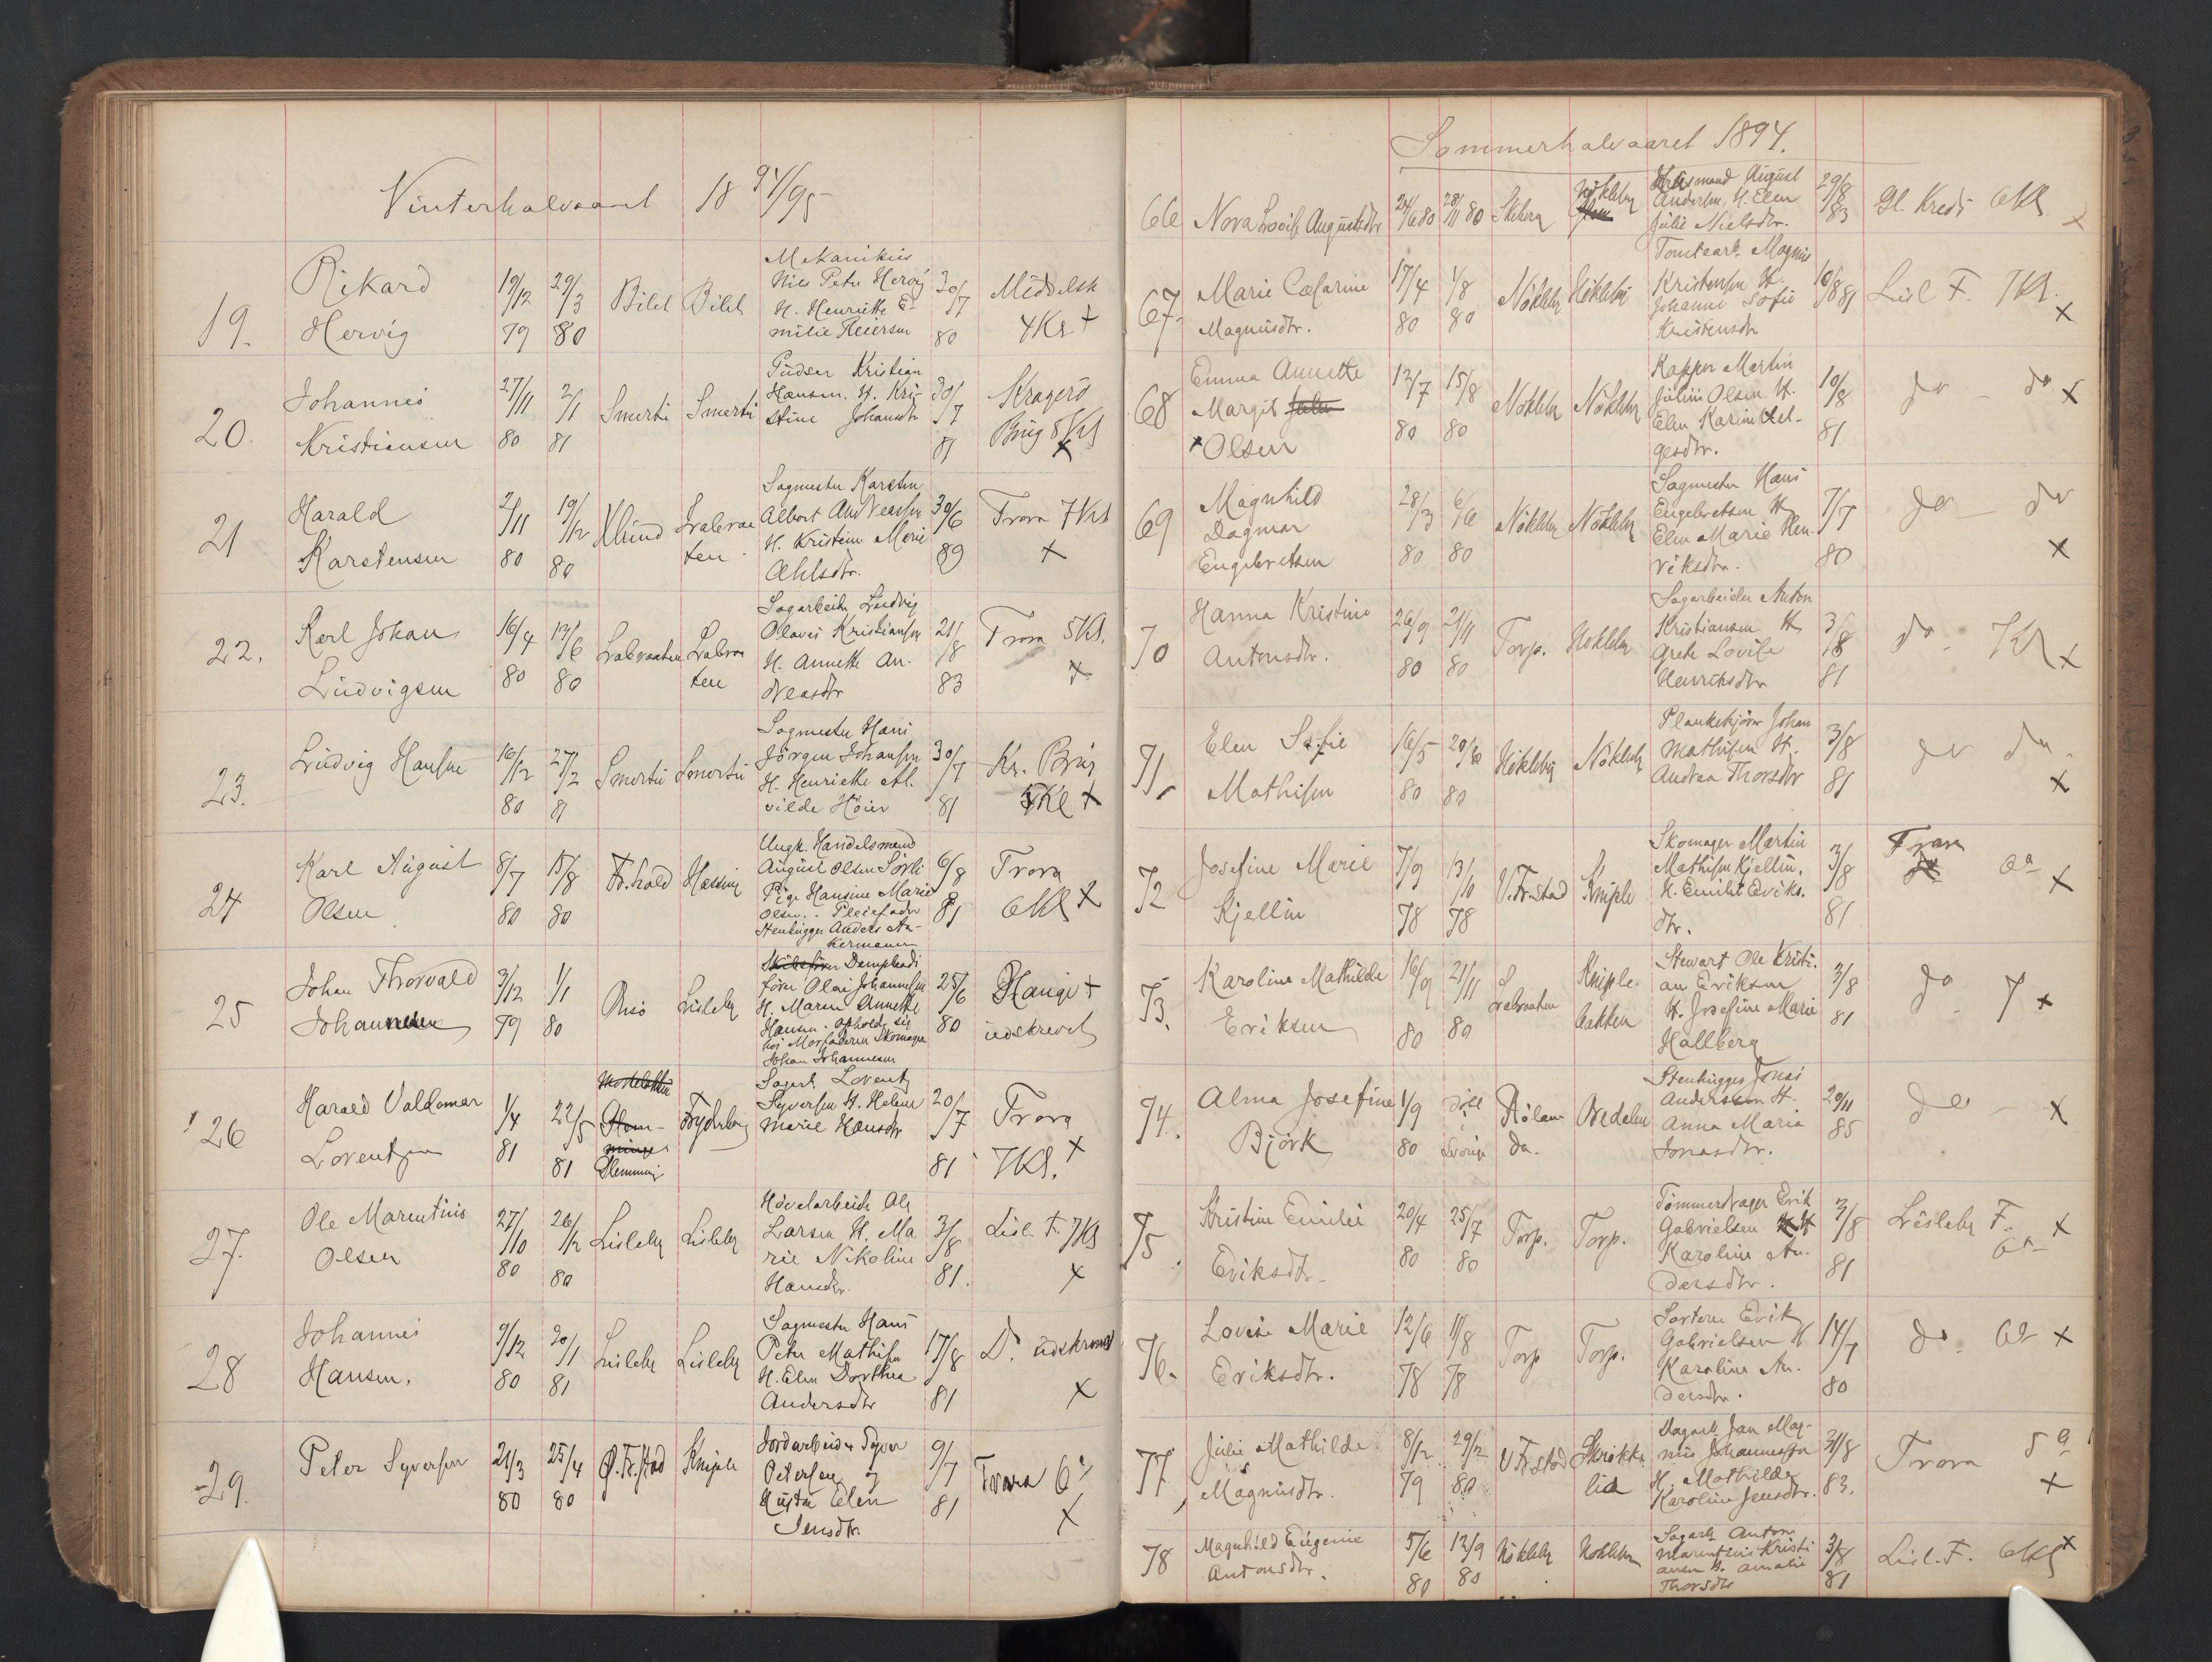 Vinterhalvaaret 1894/95
19. Rikard Hervig 19/12 79 29/3 80
Mekanikus
Nils Peter Hervig
H. Henriette E-
milie Reiersen
30/7 80 Middelsk
4Kl +
20. Johannes Kristiansen 27/11 80 2/1 81 Smertu Smertu
Pudser Kristian
Hansen. H. Kri-
stine Johansdtr
30/7 81 Kragerö
Brug 8Kl x
21 Harald Karstensen 2/11 80 19/12 80
Sagmester Karsten
Albert Andreassen
H. Kristine Marie
30/6 89 Trara 7Kl
x
22. Karl Johan Ludvigsen 16/4 80 13/6 80
Sagarbeider Ludvig
Olaves Kristiansen
H. Annette An-
dreasdtr
21/8 83 Trara 5Kl.
x
23. Ludvig Hansen 16/12 80 27/2 81 Smertu Smertu
Sagmester Hans
Jörgen Johansen
H. Henriette Al-
vilde Höier
30/7 81 Kr. Brug
Kl x
24 Karl August Olsen 8/7 80 15/8 80 Fr.hald
Ungk. Handelsmand
August Olsen Sörli
Pige Hansine Marie
Olsen. Pleiefader
Stenhugger Anders An-
kermann
6/8 81 Trara
6Kl x
25 Johan Thorvald Johannesen 3/12 79 1/1 80 Lisleby
Dampbaads
förer Olai Johannesen
H. Maren Annette
Hansen. opholder sig
hos Morfaderen Skomager
Johan Johannesen
25/6 80
udskrevet
26 Harald Valdemar Lorentzen 1/4 81 22/5 81 Glemminge
Sagarb. Lorentz
Syversen H. Helene
Marie Hansdtr
20/7 81 Trara
7Kl. x
27. Ole Marentius Olsen 27/10 80 26/12 80 Lisleby Lisleby
Hövelarbeider Ole
Larsen H. Ma
rie Nikoline
Hansdtr.
3/8 81. Lisl. F. 7Kl
x
28 Johannes Hansen. 9/12 80 20/1 81 Lisleby Lisleby
Sagmester Hans
Peter Mathisen
H. Elen Dorthea
Andersdtr
17/8 81 D. udskrevet
x
29. Peter Syversen 21/3 80 25/4 80 Ø. Fr.stad Kniple
Jordarbeider Syver
Petersen og
Hustru Elen
Jensdtr.
9/7 81 Trara 6
x
Sommerhalvaaret 1894.
66 Nora Lovise Augustsdtr 24/6 80 28/11 80 Skiberg Nökleby
August
Andersen, H. Elen
Julie Nielsdtr.
29/8 83 Gl. Kreds 6Kl x
67. Marie Catarine Magnusdtr. 17/4 80 1/8 80 Nökleby Nökleby
Tomtearb. Magnus
Kristensen H
Johanne Sofie
Kristensdtr
10/8 81 Lisl F. 7Kl.
x
68 Emma Annette Margit Olsen 12/7 80 15/8 80 Nökleby Nökleby
Kapper Martin
Julius Olsen H.
Elen Karine Hel-
gesdtr.
10/8 81 do do x
69 Magnhild Dagmar Engebretsen 28/3 80 6/6 80 Nökleby Nökleby
Sagmester Hans
Engebretsen H
Elen Marie Hen-
riksdtr.
7/7 80 do do
x
70 Hanna Kristine Antonsdtr. 26/9 80 21/11 80 Torp. Nökleby
Sagarbeider Anton
Kristiansen H
Grete Lovise
Henriksdtr
3/8 81 do 7Kl x
71. Elen Sofie Mathisen 16/5 80 20/6 80 Nökleby Nökleby
Plankekjörer Johan
Mathisen H.
Andrea Thorsdtr
3/8 81 do do
x
72 Josefine Marie Kjellin 7/9 78 13/10 78 V. Fr.stad Kniple
Skomager Martin
Mathisen Kjellin.
H. Emilie Eriks-
dtr.
3/8 81 Trara 6 x
73. Karoline Mathilde Eriksen 16/9 80 21/11 80 Kniplebakken
Stewart Ole Kristi-
an Eriksen
H. Josefine Marie
Hallberg
3/8 81 do 7 x
74. Alma Josefine Björk 1/9 80 Bedalen
Stenhugger Jonas
Andersson H.
Anna Maria
Jonasdtr.
20/11 85 do x
75. Kristine Emilie Eriksdtr. 20/4 80 25/7 80 Torp. Torp.
Tömmerdrager Erik
Gabrielsen H
Karoline An-
dersdtr.
3/8 81 Lisleby F. x
76. Lovise Marie Eriksdtr. 12/6 78 11/8 78 Torp Torp.
Sorterer Erik
Gabrielsen H
Karoline An-
dersdtr.
14/7 80 do. x
77, Julie Mathilde Magnusdtr. 8/12 79 29/2 80 V Fr.stad
Dagarb. Jan Mag-
nus Johannessen
H. Mathilde
Karoline Jensdtr.
31/8 83. Trara 5
x
78 Magnhild Eugenie Antonsdtr. 5/6 80 12/9 80 Nökleby Nökleby
Sagarb. Anton
Marentius Kristi
ansen H. Amalie
Thorsdtr
3/8 81 Lisl. F. 6Kl x